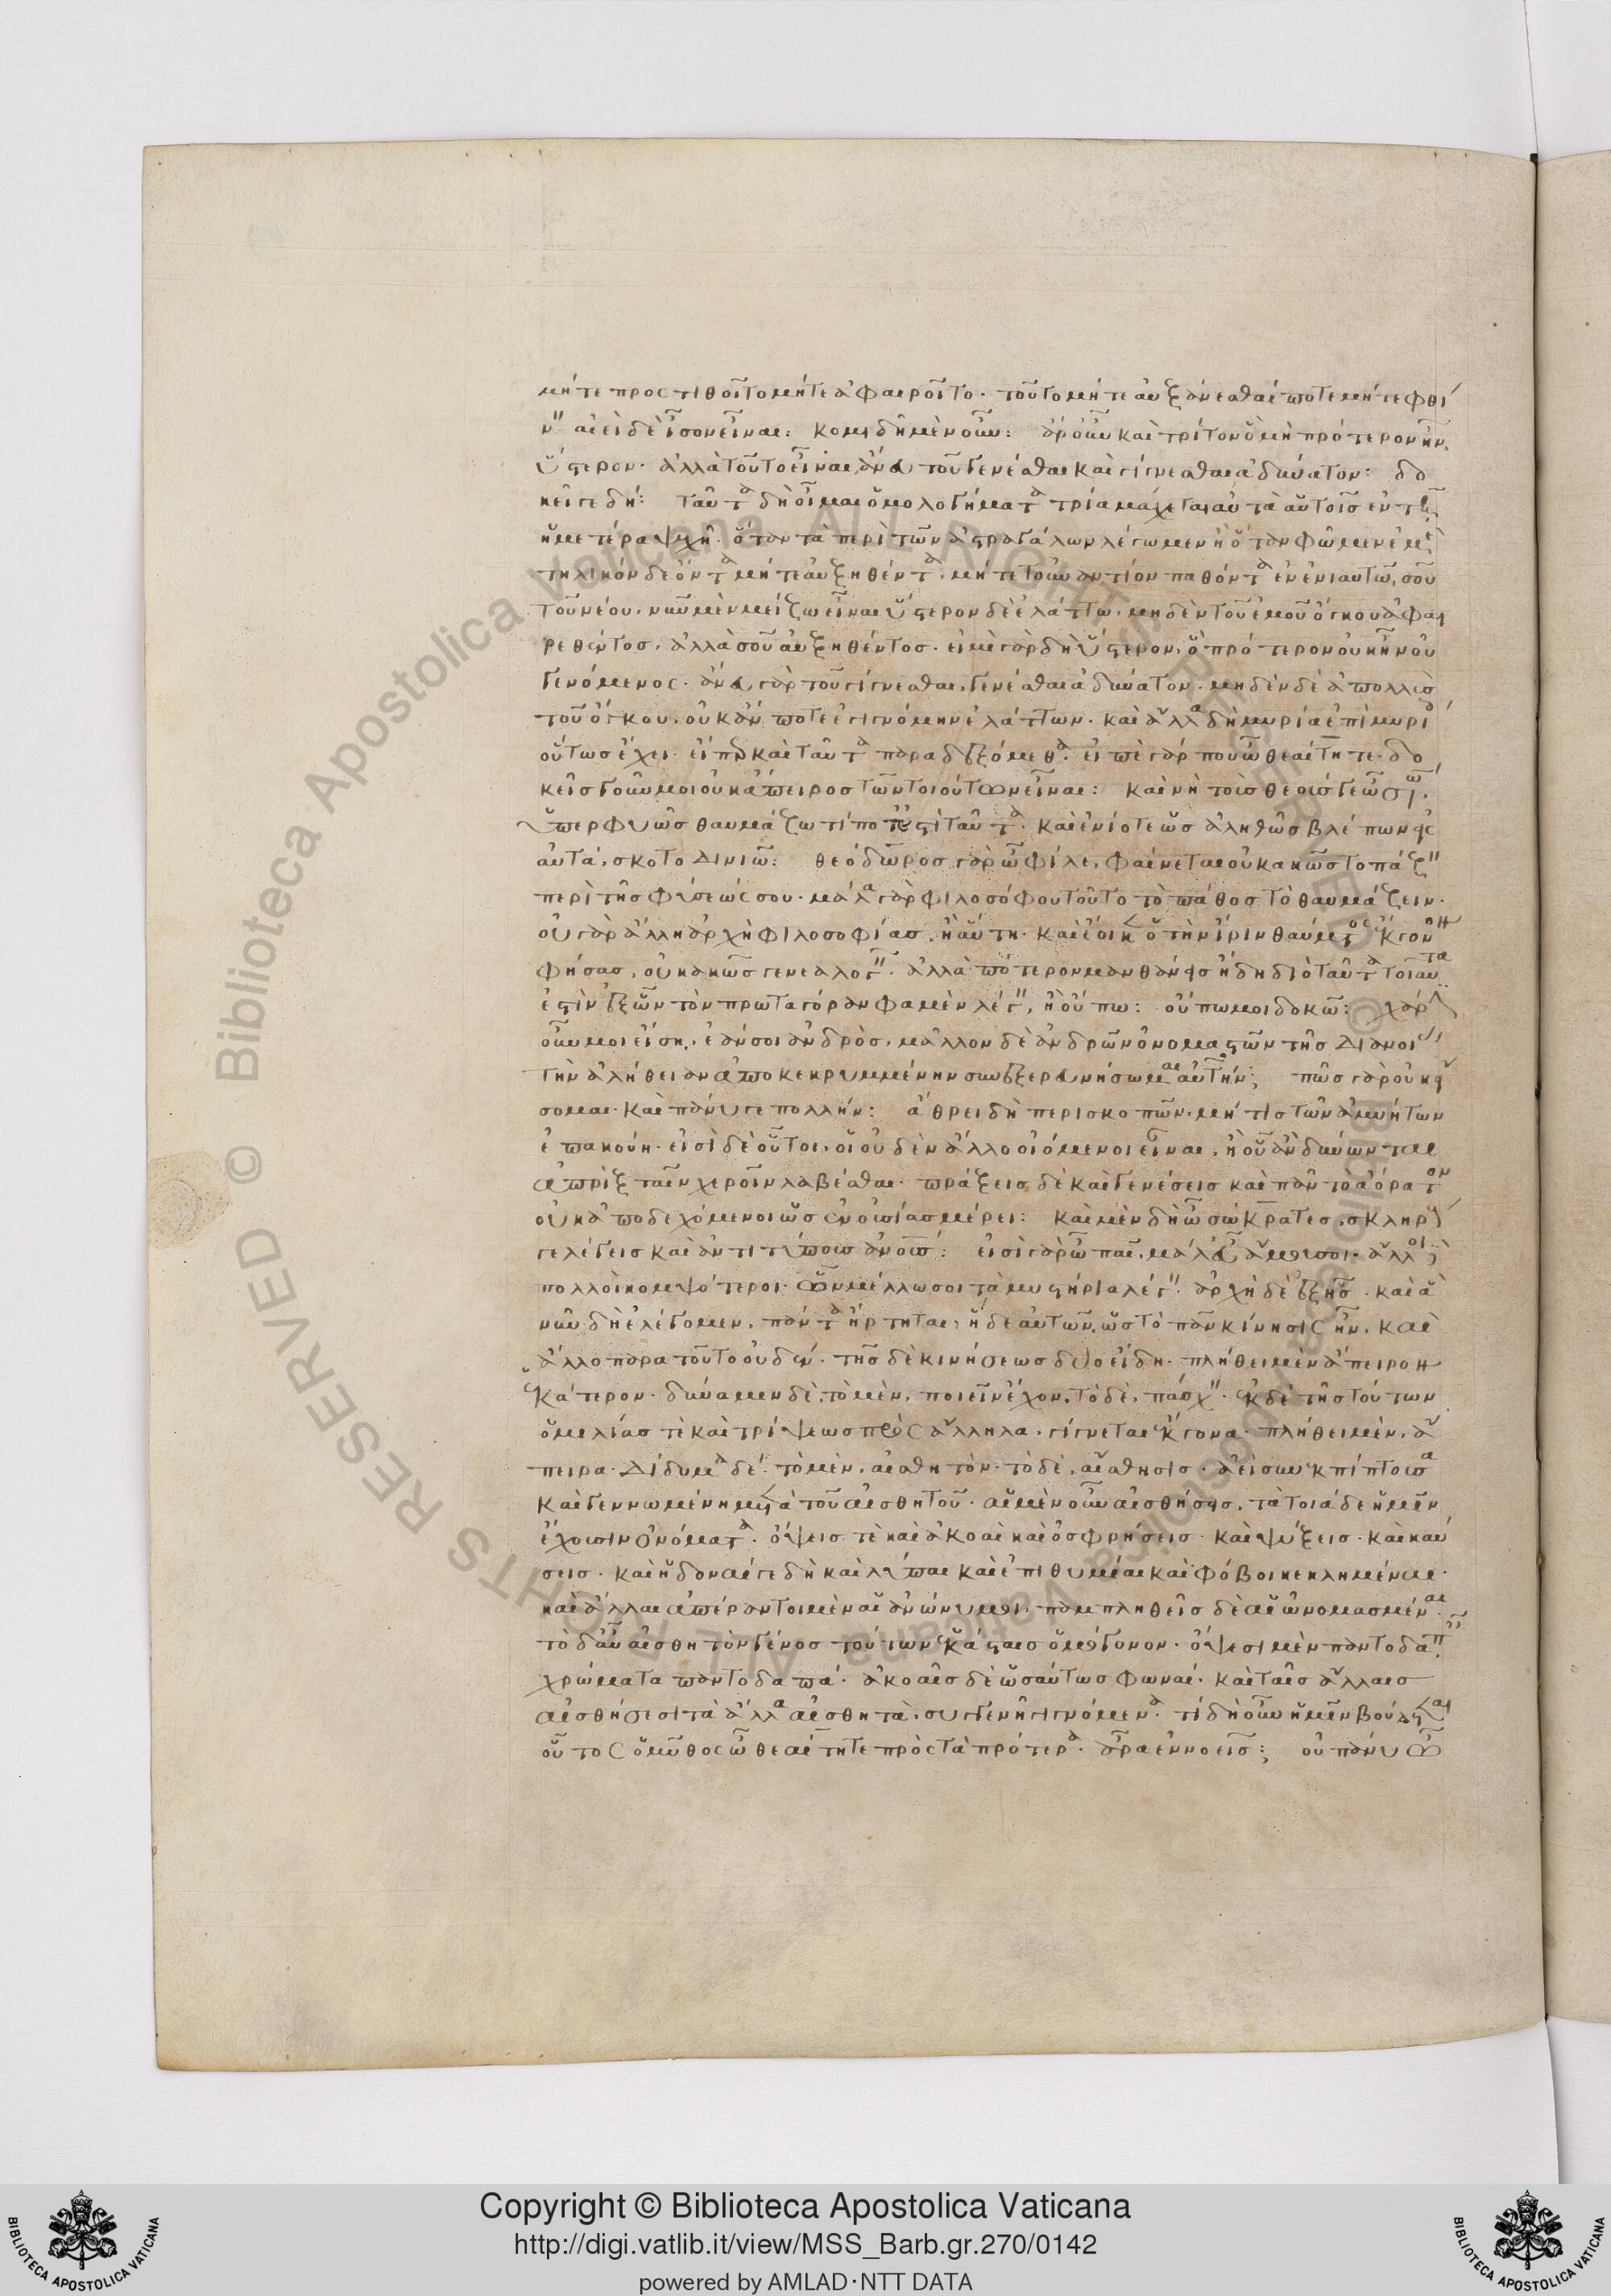 μήτε προστιθοῖτο μήτε ἀφαιροῖτο· τοῦτο μήτε αὐξάνεσθαί ποτε μήτε φθί
ν" αἰεὶ δὲ ἴσον εἶναι: κομιδῆ μὲν οὖν: ἆρ οὖν καὶ τρίτον ὃ μὴ πρότερον ἦν,
ὕστερον· ἀλλὰ τοῦτο εἶναι, ἄνευ τοῦ γενέσθαι καὶ γίγνεσθαι ἀδύνατον: δο
κεῖ γε δή: ταῦτα δὴ οἶμαι ὁμολογήματα τρία μάχεται αὐτὰ αὑτοῖς ἐν τῆ
ἡμετέρα ψυχῆ· ὅταν τὰ περὶ τῶν ἀστραγάλων λέγωμεν ἢ ὅταν φῶμεν ἐμὲ
τηλικόνδε ὄντα μήτε αὐξηθέντα, μήτε τοὐναντίον παθόντα ἐν ἐνιαυτῶ, σοῦ
τοῦ νέου, νῦν μὲν μείζω εἶναι ὕστερον δὲ ἐλάττω, μηδὲν τοῦ ἐμοῦ ὄγκου ἀφαι
ρεθέντος, ἀλλὰ σοῦ αὐξηθέντος· εἰμὶ γὰρ δὴ ὕστερον, ὃ πρότερον οὐκ ἦν οὐ
γενόμενος· ἄνευ γὰρ τοῦ γίγνεσθαι, γενέσθαι ἀδύνατον· μηδὲν δὲ ἀπολλὺς
τοῦ ὄγκου, οὐκ ἄν ποτε ἐγιγνόμην ἐλάττων· καὶ ἄλλα δὴ μυρία ἐπὶ μυρί
οὕτως ἔχει· εἴπερ καὶ ταῦτα παραδεξόμεθα· εἰπὲ γάρ που ὦ θεαίτητε· δο
κεῖς γοῦν μοι οὐκ ἄπειρος τῶν τοιούτων εἶναι: καὶ νὴ τοὺς θεούς γε ὦ σώ·
ὑπερφυῶς θαυμάζω τί ποτ' ἐστὶ ταῦτα· καὶ ἐνίοτε ὡς ἀληθῶς βλέπων εἰς
αὐτά, σκοτοδινιῶ: θεόδωρος γὰρ ὦ φίλε, φαίνεται οὐ κακῶς τοπάζ"
περὶ τῆς φύσεώς σου· μάλα γὰρ φιλοσόφου τοῦτο τὸ πάθος τὸ θαυμάζειν·
οὐ γὰρ ἄλλη ἀρχὴ φιλοσοφίας, ἢ αὕτη· καὶ ἔοικεν ὁ τὴν ἶριν θαύματος ἔκγονον
φήσας, οὐ κακῶς γενεαλογ"· ἀλλὰ πότερον μανθάνεις ἤδη διὸ ταῦτα τοιαῦτα
ἐστὶν ἐξ ὧν τὸν πρωταγόραν φαμὲν λέγ", ἢ οὔπω: οὔπω μοι δοκῶ: χάρ
οὖν μοι εἴση, ἐάν σοι ἀνδρὸς, μᾶλλον δὲ ἀνδρῶν ὀνομαστῶν τῆς διανοί
τὴν ἀλήθειαν ἀποκεκρυμμένην συνεξερευνήσωμαι αὐτήν; πῶς γὰρ οὐκ εἴ
σομαι· καὶ πάνυ γε πολλήν: ἄθρει δὴ περισκοπῶν· μή τις τῶν ἀμυήτων
ἐπακούη· εἰσὶ δὲ οὗτοι, οἱ οὐδὲν ἄλλο οἰόμενοι εἶναι, ἢ οὗ ἂν δύνωνται
ἀπρὶξ ταῖν χεροῖν λαβέσθαι· πράξεις δὲ καὶ γενέσεις καὶ πᾶν τὸ ἀόρατον
οὐκ ἀποδεχόμενοι ὡς ἐν οὐσίας μέρει: καὶ μὲν δὴ ὦ σώκρατες, σκληρούς
γε λέγεις καὶ ἀντιτύπους ἀνους: εἰσὶ γὰρ ὦ παῖ, μάλ' εὖ ἄμουσοι· ἄλλοι δὲ
πολλοὶ κομψότεροι· ὧν μέλλω σοι τὰ μυστήρια λέγ"· ἀρχὴ δὲ ἐξ ἧς· καὶ ἃ
νῦν δὴ ἐλέγομεν, πάντα ἤρτηται, ἥδε αὐτῶν, ὡς τὸ πᾶν κίνησις ἦν, καὶ
ἄλλο παρὰ τοῦτο οὐδέν· τῆς δὲ κινήσεως δύο εἴδη· πλήθει μὲν ἄπειρον
ἑκάτερον· δύναμιν δὲ, τὸ μὲν, ποιεῖν ἔχον, τὸ δὲ, πάσχ"· ἐκ δὲ τῆς τούτων
ὁμιλίας τὲ καὶ τρίψεως πρὸς ἄλληλα, γίγνεται ἔκγονα· πλήθει μὲν, ἄ
πειρα· δίδυμα δέ· τὸ μὲν, αἰσθητόν· τὸ δὲ, αἴσθησις· ἀεὶ συνεκπίπτουσα
καὶ γεννωμένη μετὰ τοῦ αἰσθητοῦ· αἱ μὲν οὖν αἰσθήσεις, τὰ τοιάδε ἡμῖν
ἔχουσιν ὀνόματα· ὄψεις τὲ καὶ ἀκοαὶ καὶ ὀσφρήσεις· καὶ ψύξεις· καὶ καύ
σεις· καὶ ἡδοναί γε δὴ καὶ λύπαι καὶ ἐπιθυμίαι καὶ φόβοι κεκλημέναι·
καὶ ἄλλαι ἀπέραντοι μὲν αἱ ἀνώνυμοι, παμπληθεῖς δὲ αἱ ὠνομασμέναι
τὸ δ' αὖ αἰσθητὸν γένος τούτων ἑκάσταις ὁμόγονον· ὄψεσι μὲν παντοδαπαῖς
χρώματα παντοδαπά· ἀκοαῖς δὲ ὡσαύτως φωναί· καὶ ταῖς ἄλλαις
αἰσθήσεσι τὰ ἄλλα αἰσθητὰ, συγγενῆ γιγνόμενα· τί δὴ οὖν ἡμῖν βούλεται
οὗτος ὁ μῦθος ὦ θεαίτητε πρὸς τὰ πρότερα· ἆρα ἐννοεῖς; οὐ πάνυ ὦ
Biblioteca Apostolica Vaticana ALL RIGHTS RESERVED ©
Copyright © Biblioteca Apostolica Vaticana
http://digi.vatlib.it/view/MSS_Barb.gr.270/0142
powered by AMLAD·NTT DATA
BIBLIOTECA APOSTOLICA VATICANA
BIBLIOTECA APOSTOLICA VATICANA